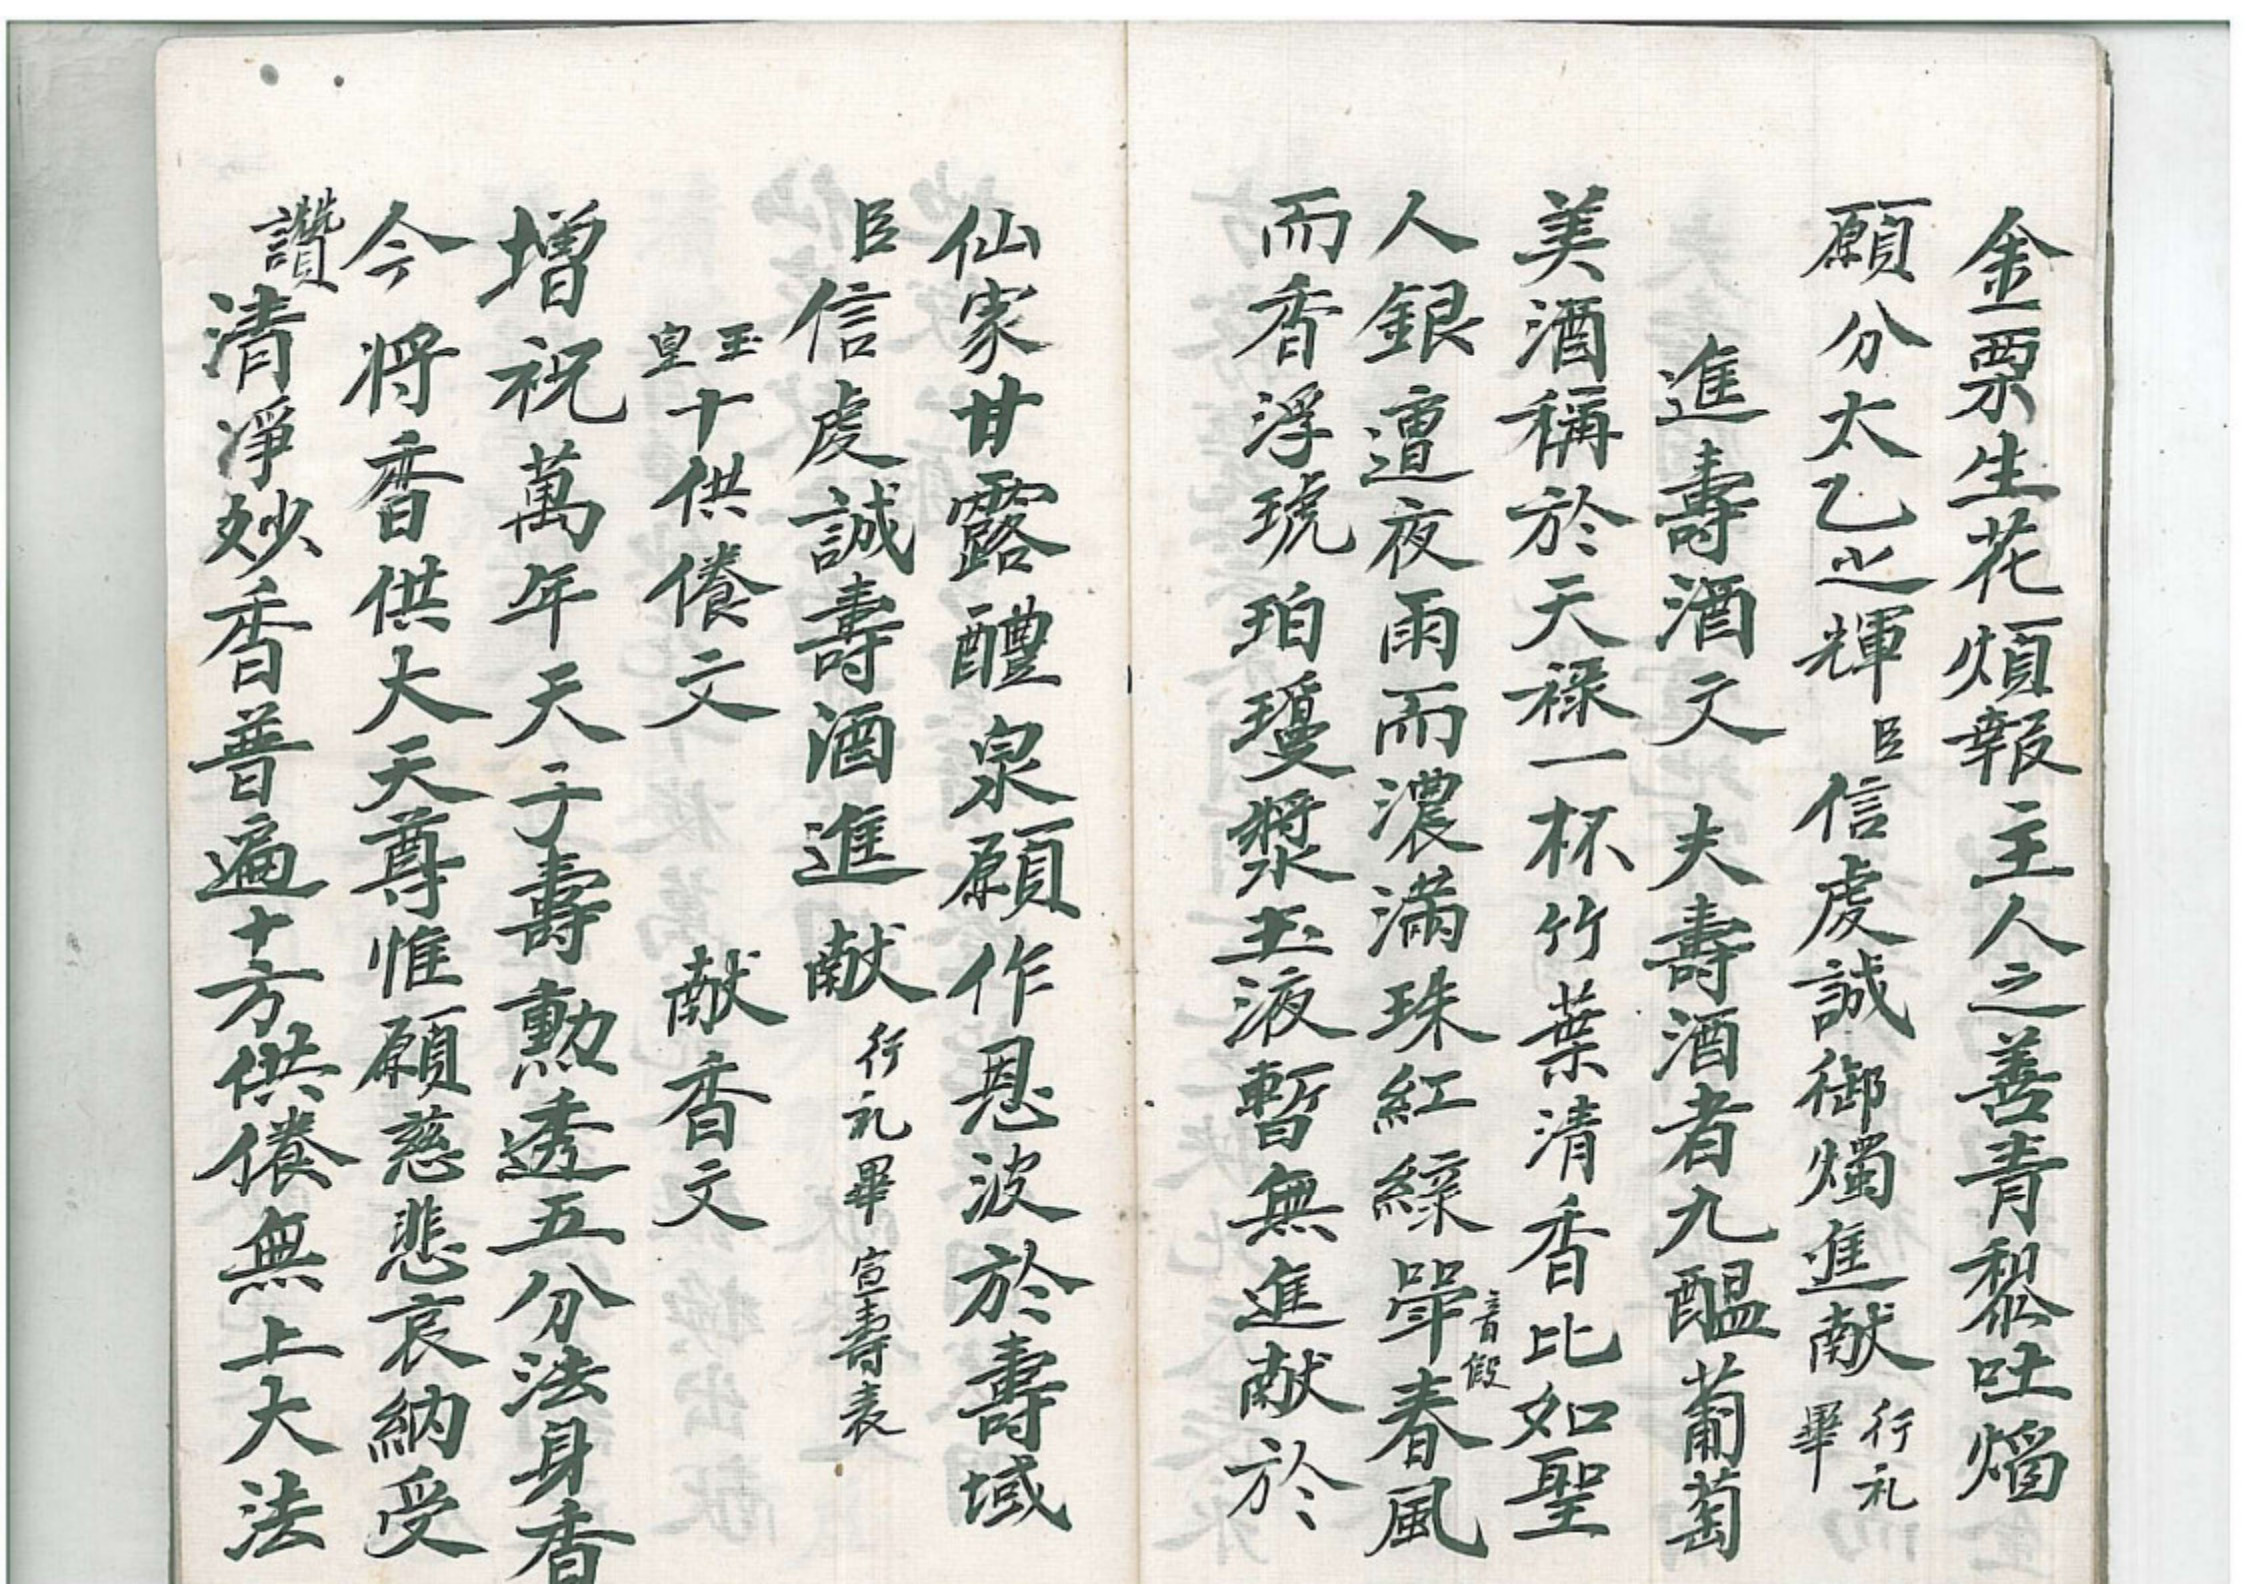 金粟生花煩報主人之善青黎吐熖
願分太乙之輝臣信虔誠御燭進献行礼畢
進壽酒文 夫壽酒者九醞葡萄
美酒稱於天祿一杯竹葉清香比如聖
人銀邅夜雨而濃滿珠紅綵斝音假春風
而香浮琥珀瓊漿玉液暫無進献於
仙家甘露醴泉願作恩波於壽域
臣信虔誠壽酒進献行礼畢宣壽表
玉皇十供飬文 献香文
增祝萬年天子壽勳透五分法身香
今将香供大天尊惟願慈悲哀納受
讚清淨妙香普遍十方供飬無上大法